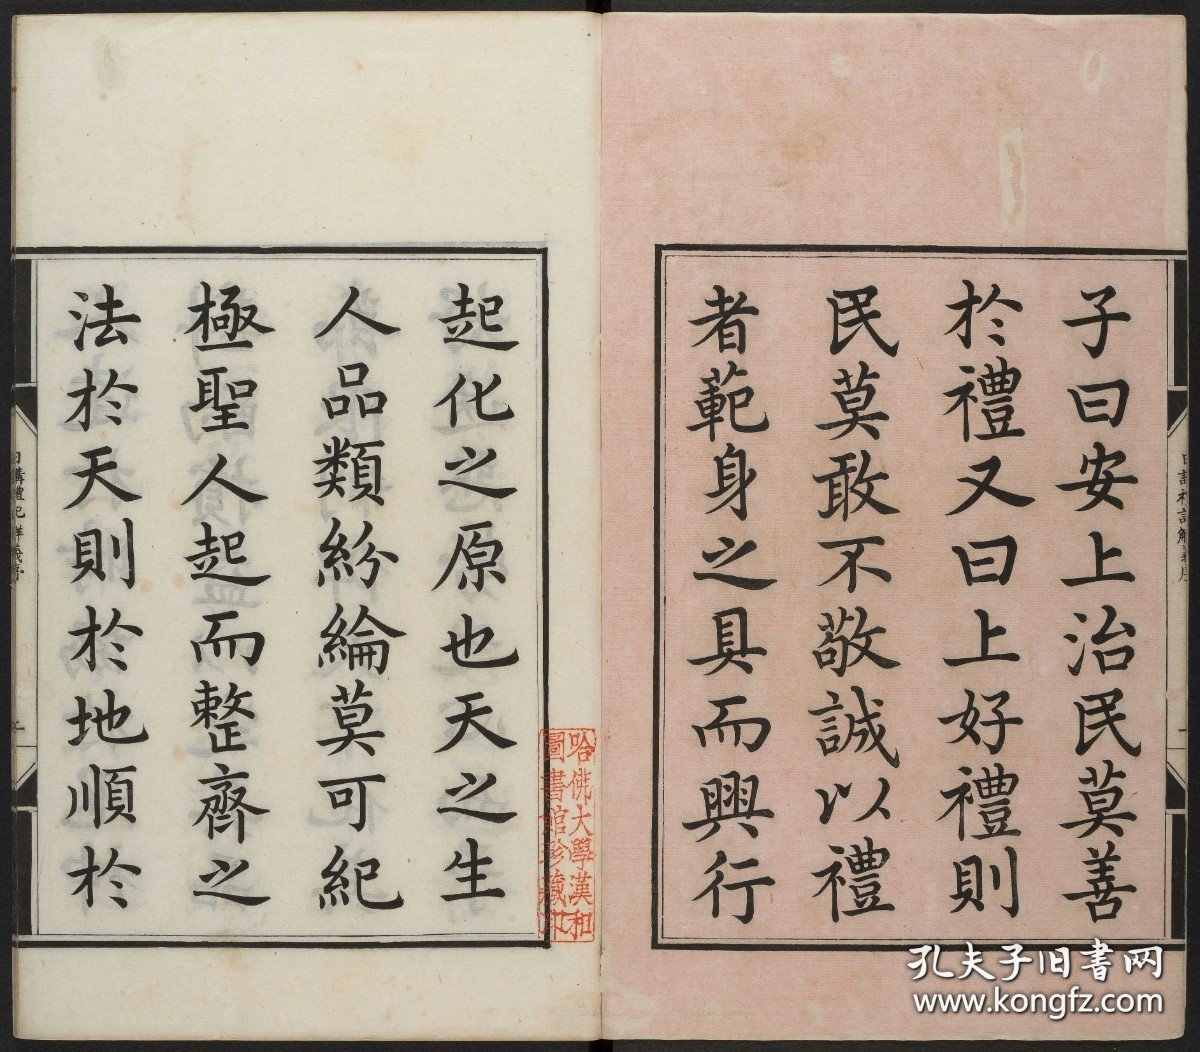 子曰安上治民莫善
於禮又曰上好禮則
民莫敢不敬誠以禮
者範身之具而興行
起化之原也天之生
人品類紛綸莫可紀
極聖人起而整齊之
法於天則於地順於
日講禮記解義序
哈佛大學漢和
圖書館珍藏印
孔夫子旧书网
www.kongfz.com